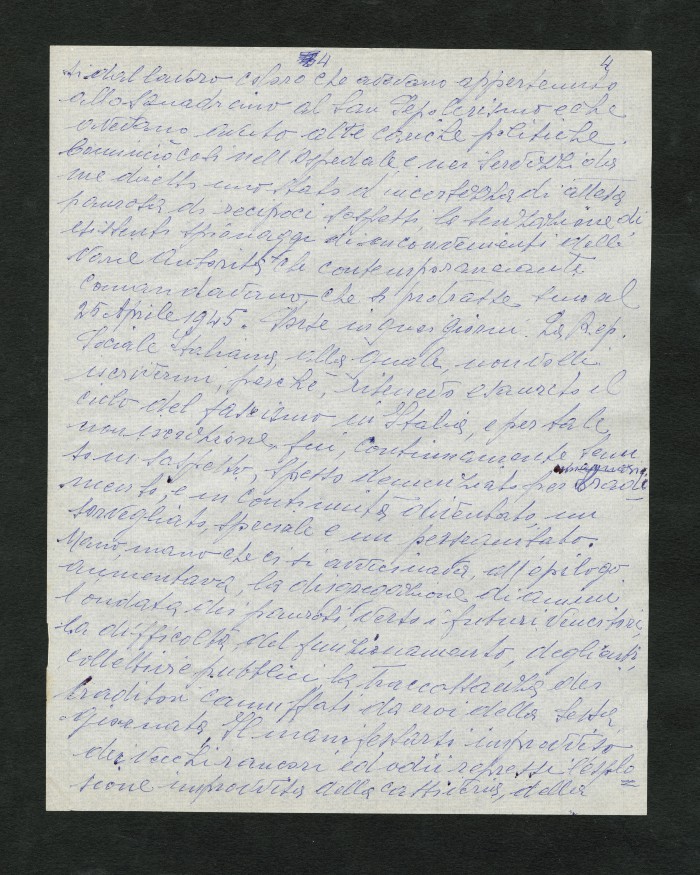 4 4
ti dal lavoro coloro che avevano appartenuto
allo Squadrismo al San Sepolcrismo e che
avevano avuto alte cariche politiche.
Cominciò così nell'Ospedale, e nei Servizi da
me diretti uno stato d'incertezza di attesa
paurosa di reciproci sospetti, la sensazione di
esistenti spionaggi di sconvenimenti delle
varie Autorità che contemporaneamente
comandavano, che si protrasse sino al
25 Aprile 1945. Sorse in quei giorni. La Rep.
Sociale Italiana, alla quale, non volli
iscrivermi, perchè, ritenevo esaurito il
ciclo del fascismo in Italia, e per tale
non iscrizione fui, continuamente tenu
to in sospetto, spesso denunziato per tradi
mento, e in continuità diventato, un
sorvegliato, speciale e un perseguitato.
Mano, mano che ci si avvicinava, all'epilogo
aumentava, la disgregazione di animi
l'ondata dei paurosi verso i futuri vincitori,
la difficoltà, del funzionamento, degli enti,
collettivi e pubblici, la tracotanza dei
traditori camuffati da eroi della sesta
giornata. Il manifestarsi improvviso
dei vecchi rancori ed odii repressi l'esplo
sione improvvisa della cattiveria, della